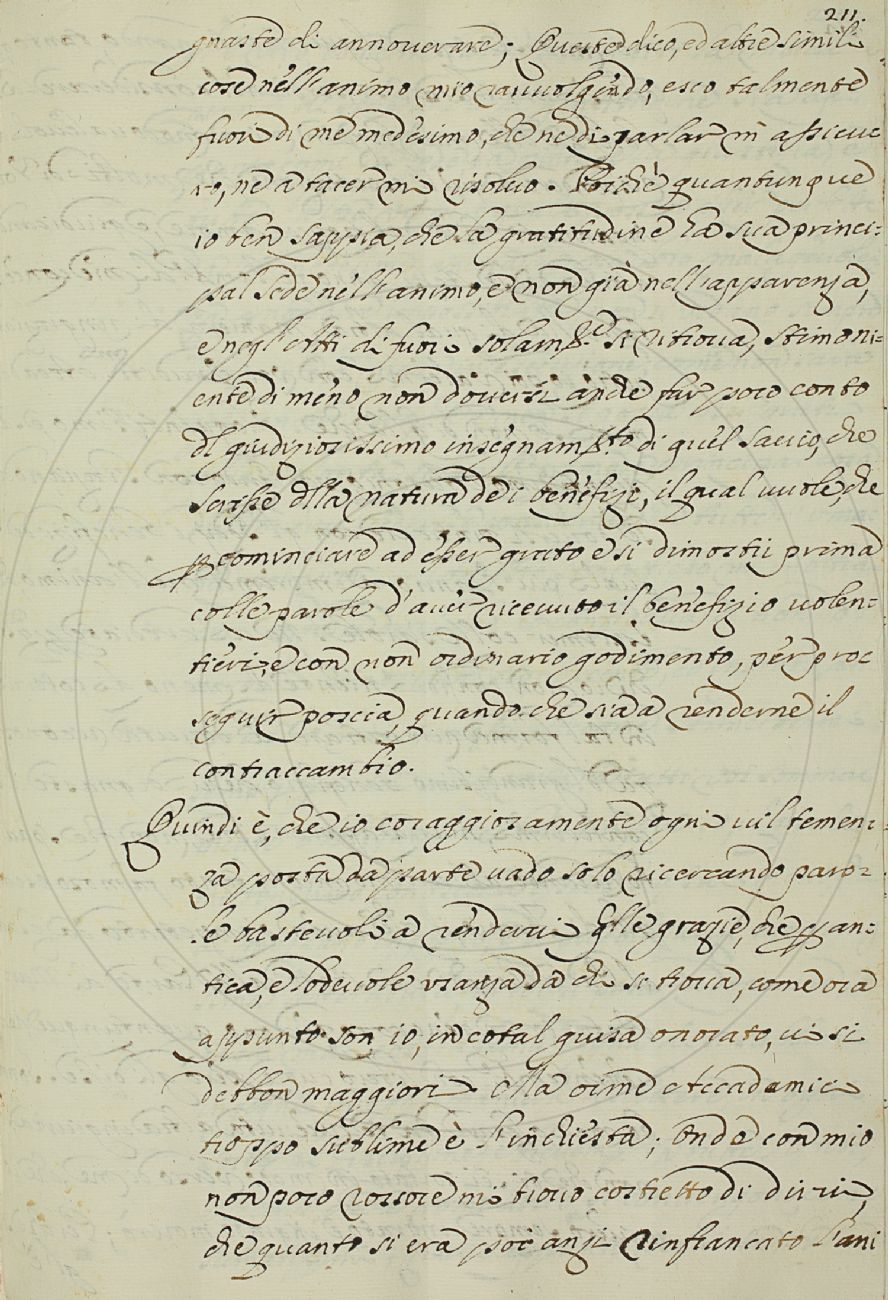 211.
gnaste di annoverare; Queste dico, ed altre simili
cose nell'animo mio ravvolgendo, esco talmente
fuori di me medesimo, che ne di parlar m'assicu
ro, ne a tacer mi risolvo. Poichè quantunque
io ben sappia, che la gratitudine ha sua princi=
pal sede nell'animo, e non già nell'apparenza,
e negl'Atti di fuori solam.te si ritrova, stimoni=
ente di meno non doversi anche far poco conto
dl giudiziosissimo insegnam.to di quel savio, che
scrisse dlla natura de i benefizi, il qual vuole, che
p cominciare ad esser grato e si dimostri prima
colle parole d'aver ricevuto il benefizio volen=
tieri, e con non ordinario godimento, per proc
seguir poscia, quando che sia a renderne il
contraccambio.
Quindi è, che io coraggiosamente ogni vil temen=
za posta da parte vado solo ricercando paro=
le bastevoli a rendervi qlle grazie, che p an=
tica, e lodevole usanza da chi si trova, come ora
appunto son io, in cotal guisa onorato, vi si
debbon maggiori. Ma oimè Accademici
troppo sublime è l'inchiesta; Onde con mio
non poco rossore mi trovo costretto di dirvi,
che quanto si era poc'anzi rinfrancato l'ani